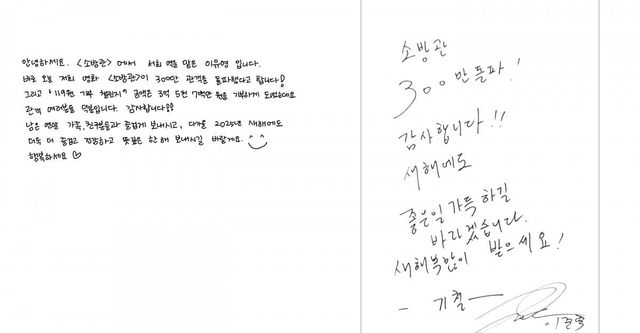 안녕하세요. <소방관>에서 서희 역을 맡은 이유영 입니다.
바로 오늘 저희 영화 <소방관>이 300만 관객을 돌파했다고 합니다!
그리고 "119원 기부 챌린지" 금액은 3억 5천 7백만 원을 기부하게 되었는데요
관객 여러분들 덕분입니다. 감사합니다!!
남은 연말 가족, 친구분들과 즐겁게 보내시고, 다가올 2025년 새해에도
더욱 더 즐겁고 건강하고 뜻깊은 한 해 보내시길 바랄게요.
행복하세요 ♡
소방관
300만 돌파!
감사합니다!!
새해에도
좋은일 가득 하길
바라겠습니다.
새해복많이 받으세요!
- 기철 -
이준혁